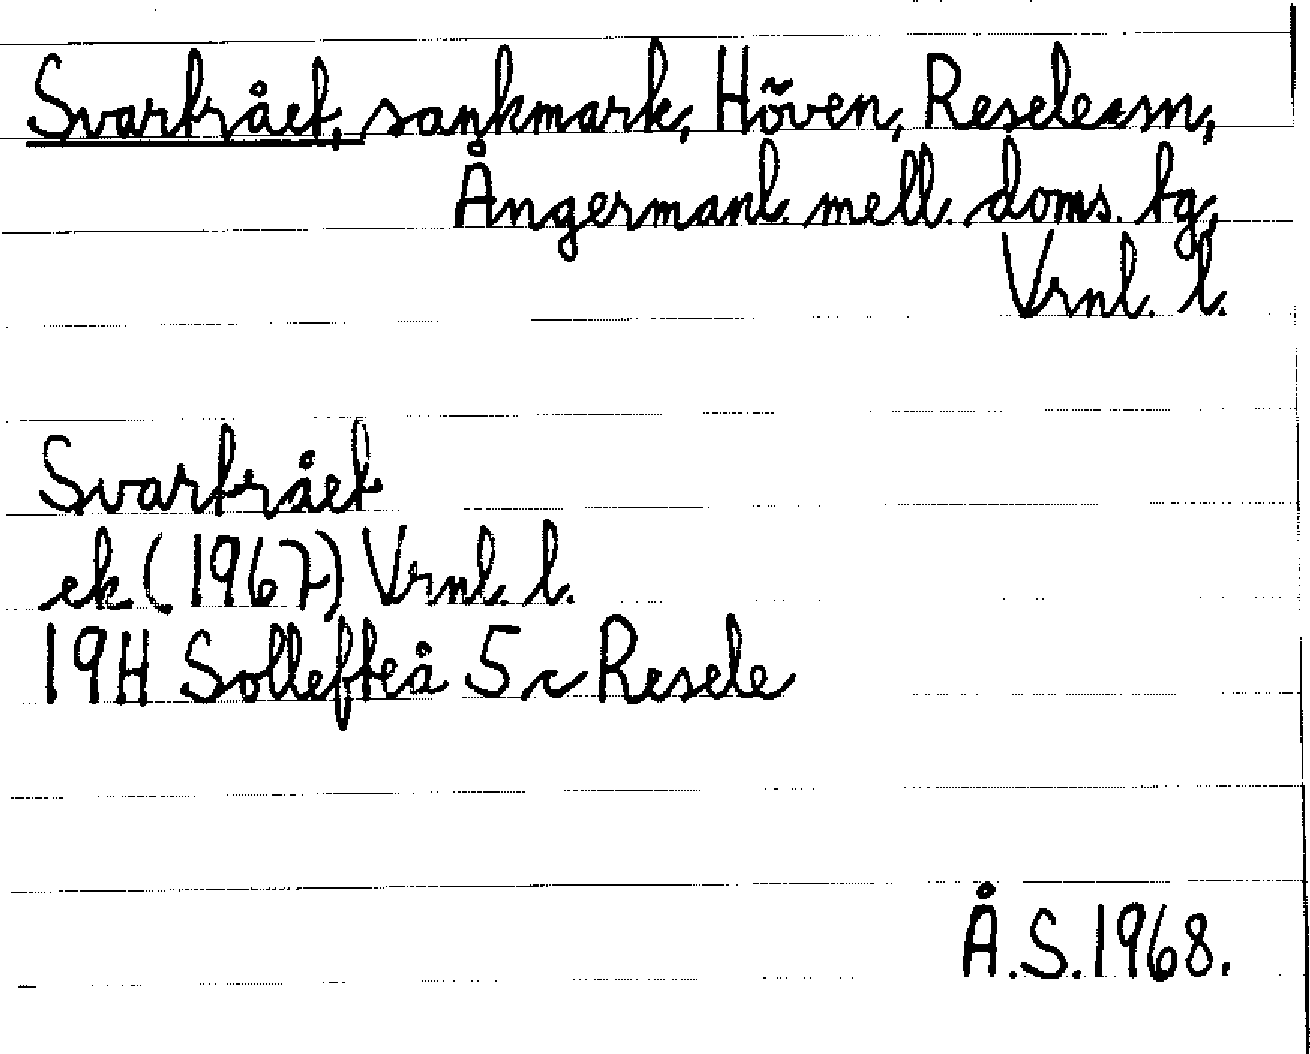 Svartrået, sankmark, Höven, Resele sn,
Ångermanl. mell. doms. tg,
Vrnl. l.
Svartrået
ek (1967) Vrnl. l.
19H Sollefteå 5 c Resele
Å.S. 1968.